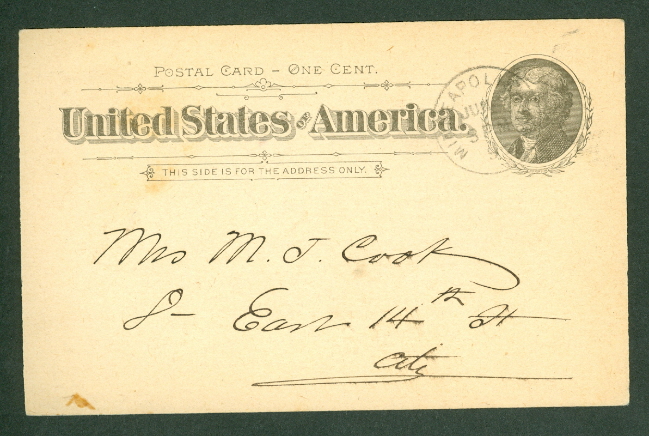 POSTAL CARD – ONE CENT.
United States of America.
THIS SIDE IS FOR THE ADDRESS ONLY.
Mrs M. J. Cook
8– East 14th St
City